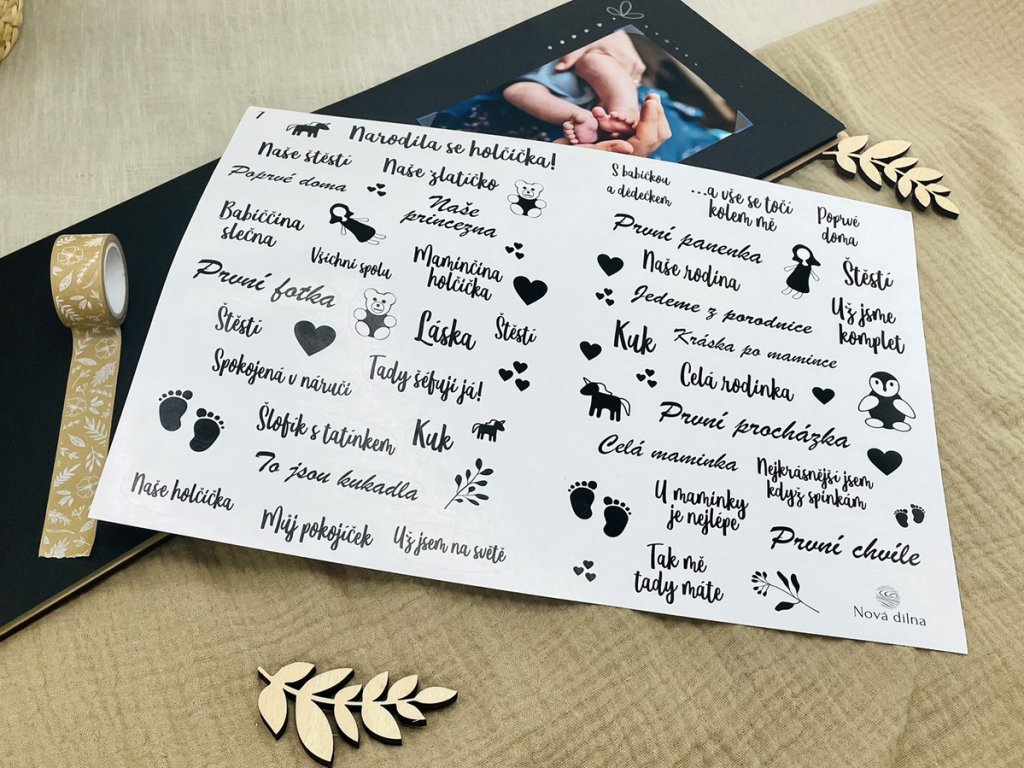 1
Narodila se holčička!
Naše štěstí
Naše zlatíčko
Poprvé doma
Naše
princezna
Babiččina
slečna
Všichni spolu
Maminčina
holčička
První fotka
Štěstí
Láska
Štěstí
Spokojená v náručí
Tady šéfuji já!
Šlofík s tatínkem
Kuk
To jsou kukadla
Naše holčička
Můj pokojíček
Už jsem na světě
S babičkou
a dědečkem
...a vše se točí
kolem mě
Poprvé
doma
První panenka
Naše rodina
Štěstí
Jedeme z porodnice
Už jsme
komplet
Kuk
Kráska po mamince
Celá rodinka
První procházka
Celá maminka
Nejkrásnější jsem
když spinkám
U maminky
je nejlépe
První chvíle
Tak mě
tady máte
Nová dílna